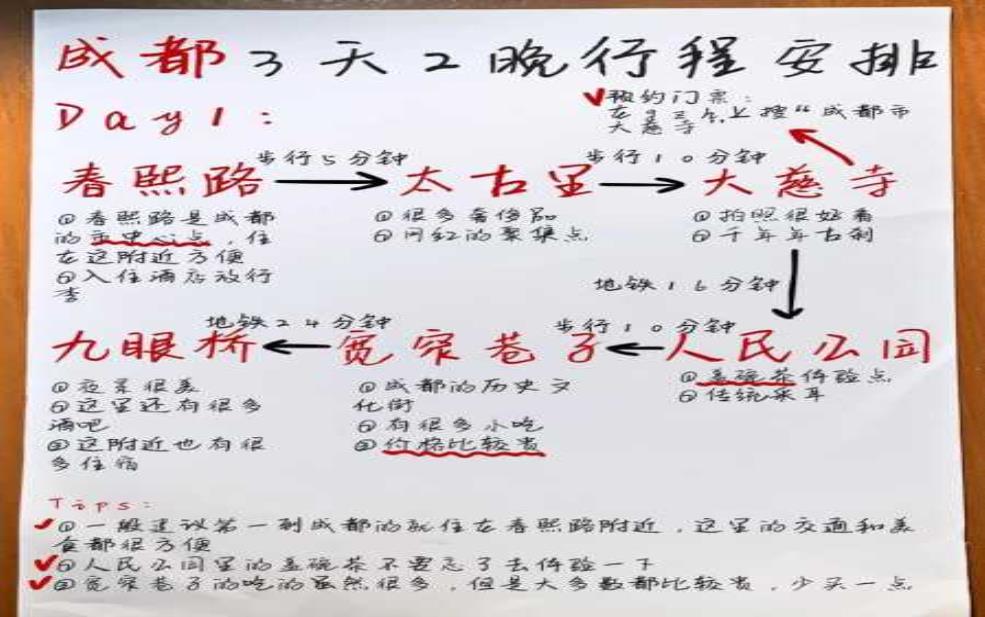 成都3天2晚行程安排
Day1:
预约门票:
在gzh上搜“成都市
大慈寺
步行5分钟
步行10分钟
春熙路
太古里
大慈寺
①春熙路是成都
的市中心点,住
在这附近方便
②入住酒店放行
李
①很多奢侈品
②网红的聚集点
①拍照很好看
②千年年古刹
地铁16分钟
地铁24分钟
步行10分钟
九眼桥
宽窄巷子
人民公园
①夜景很美
②这里还有很多
酒吧
③这附近也有很
多住宿
①成都的历史文
化街
②有很多小吃
③价格比较贵
①盖碗茶体验点
②传统采耳
Tips:
①一般建议第一到成都的就住在春熙路附近,这里的交通和美
食都很方便
②人民公园里的盖碗茶不要忘了去体验一下
③宽窄巷子的吃的虽然很多,但是大多数都比较贵,少买一点